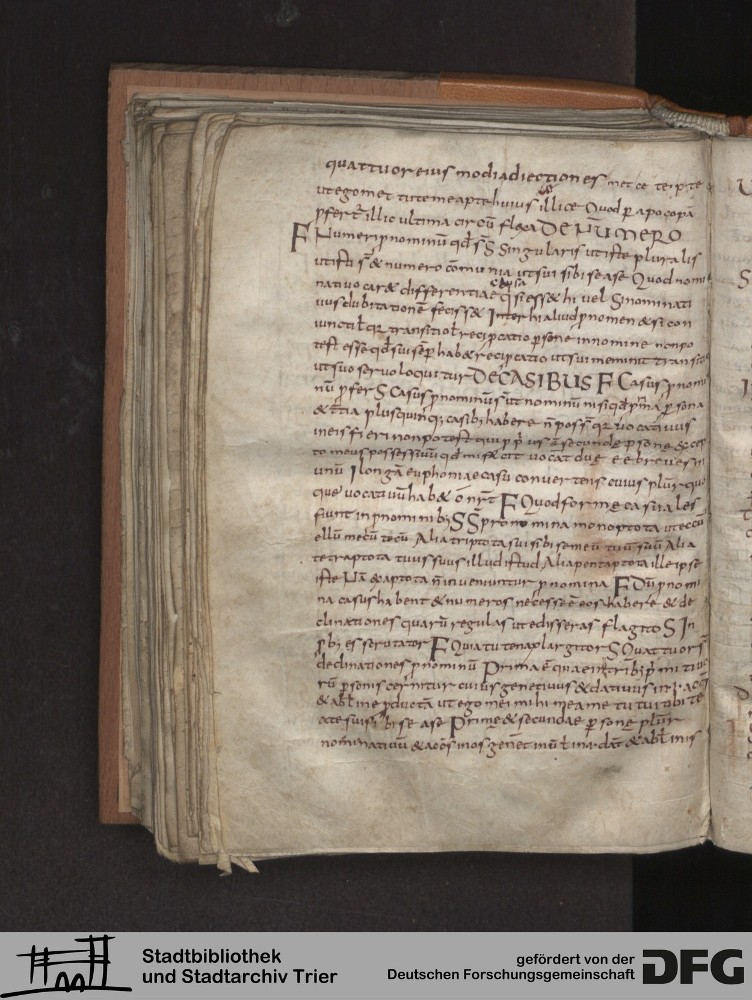 quattuor eius modi adiectiones met ce te pte
ut egomet tutemeapte huiusce illice Quod p apocopā
illic ultima circū flexa DE NUMERO
F Numeri pnominū qd sś Singularis ut iste pluralis
ut isti & numero cōmunia ut sui sibi se a se Quod nomi
nativo car& differentiae causa si ess& hi vel Si nominati
vus dubitationē feciss& Inter hi aliud pnomen & si con
transitio recipcatio psone in nomine non po
test esse qd sui sēp hab& recipcatio ut sui meminit transitio
ut suo servo loquitur DE CASIBUS F Casus pnomi
nū pfer S Casus pnominū sūt ut nominū nisi qd prima psona
& tertia plus quinq; casib; habere ñ poss qr vocativus
in eis fieri non potest secunde psone excep
to meus possessivū qd mi facit vocat due e e breves in
unū I longā euphoniae casu convertens cuius plur quo
que vocativū hab& F Quod forme casuales
fiunt in pnominib; S Spronomina monoptota ut eccū
ellū mecū tecū Alia triptota sui sibi se meū tuū suū Alia
tetraptota tuus suus illud istud Alia pentaptota ille ipse
iste Nā exaptota ñ inveniuntur pnomina F Dū pnomi
na casus habent & numeros necesse ē eos habere & de
clinationes quarū regulas ut edisseras flagito S In
pb; es scrutator F Quia tu tenax largitor S Quattuor s
declinationes pnominū Prima ē quae in trib; primitivo
rū psonis cernitur cuius genetivus & dativus in i ac
& abl in e pducta ut ego mei mihi me a me tu tui tibi te
a te sui sibi se a se Prime & secundae psone plur
nominativū & acc in os genet in ū dat & abl in is
Stadtbibliothek
und Stadtarchiv Trier
gefördert von der
Deutschen Forschungsgemeinschaft
DFG